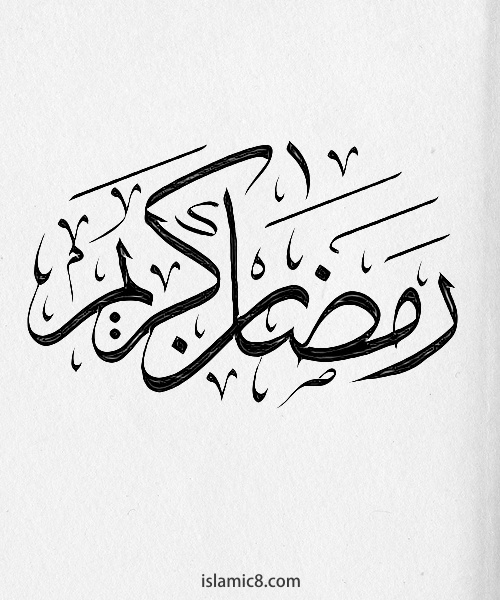 رمضان كريم
islamic8.com